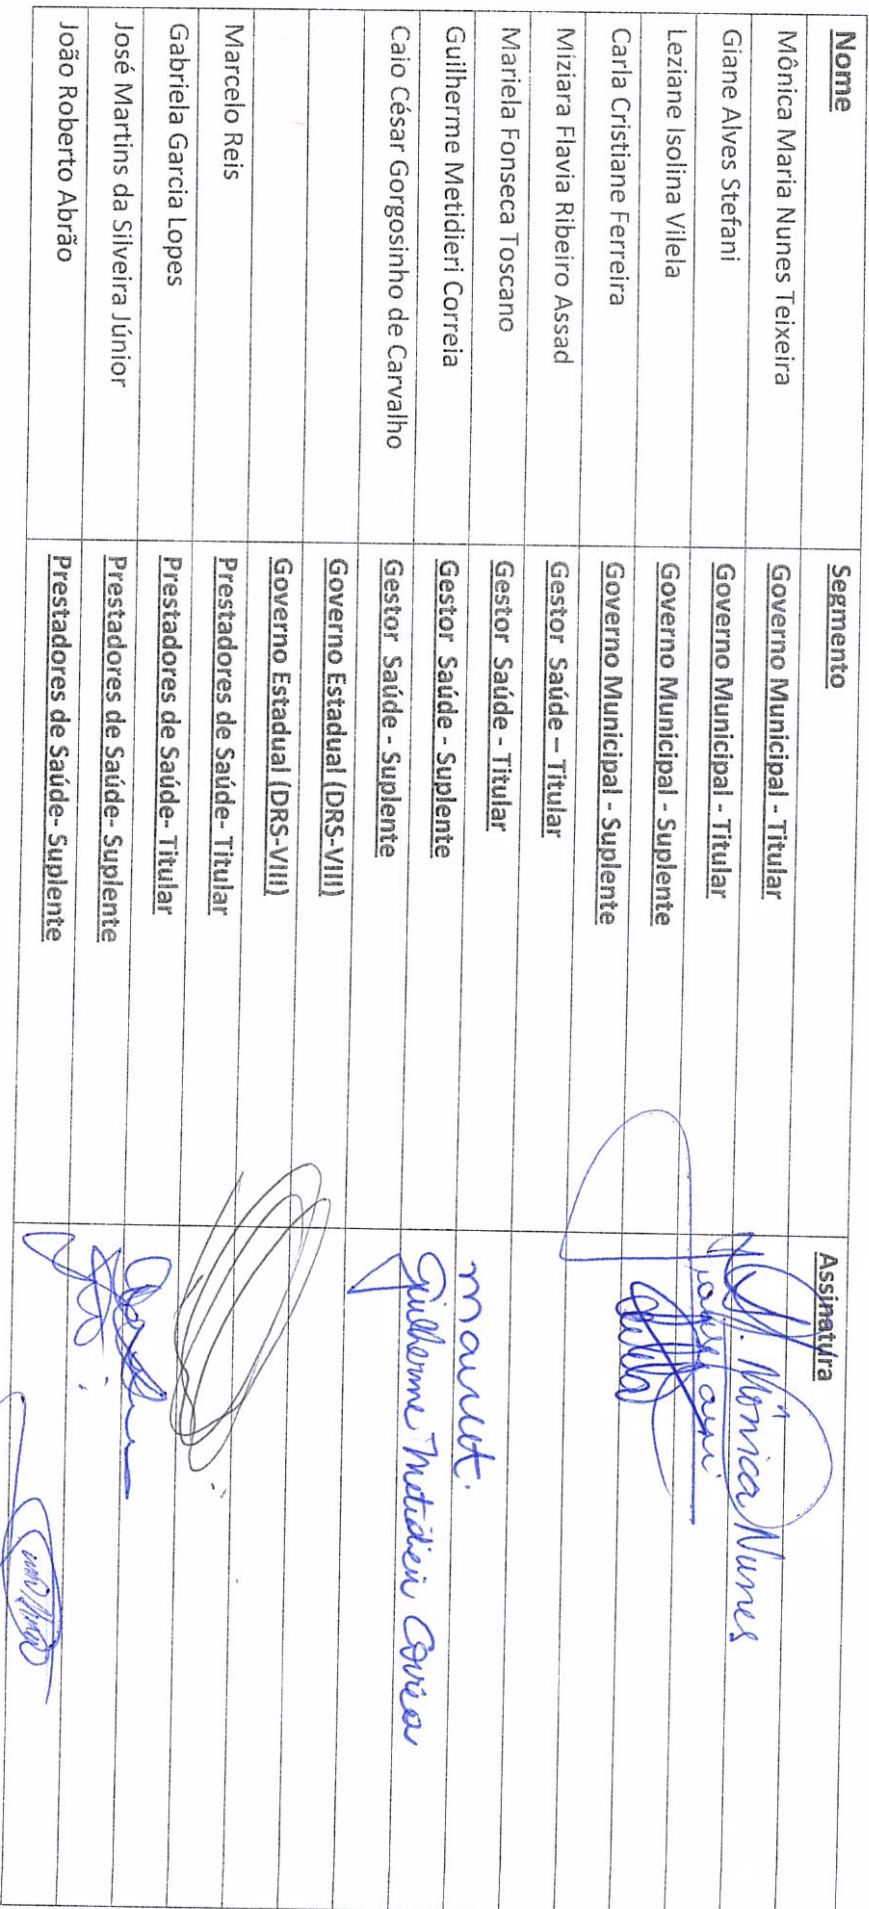 Nome Segmento Assinatura
Mônica Maria Nunes Teixeira Governo Municipal - Titular Mônica Nunes
Giane Alves Stefani Governo Municipal - Titular
Leziane Isolina Vilela Governo Municipal - Suplente
Carla Cristiane Ferreira Governo Municipal - Suplente
Miziara Flavia Ribeiro Assad Gestor Saúde – Titular
Mariela Fonseca Toscano Gestor Saúde - Titular
Guilherme Metidieri Correia Gestor Saúde - Suplente Guilherme Metidieri Correia
Caio César Gorgosinho de Carvalho Gestor Saúde - Suplente
Governo Estadual (DRS-VIII)
Governo Estadual (DRS-VIII)
Marcelo Reis Prestadores de Saúde- Titular
Gabriela Garcia Lopes Prestadores de Saúde- Titular
José Martins da Silveira Júnior Prestadores de Saúde- Suplente
João Roberto Abrão Prestadores de Saúde- Suplente